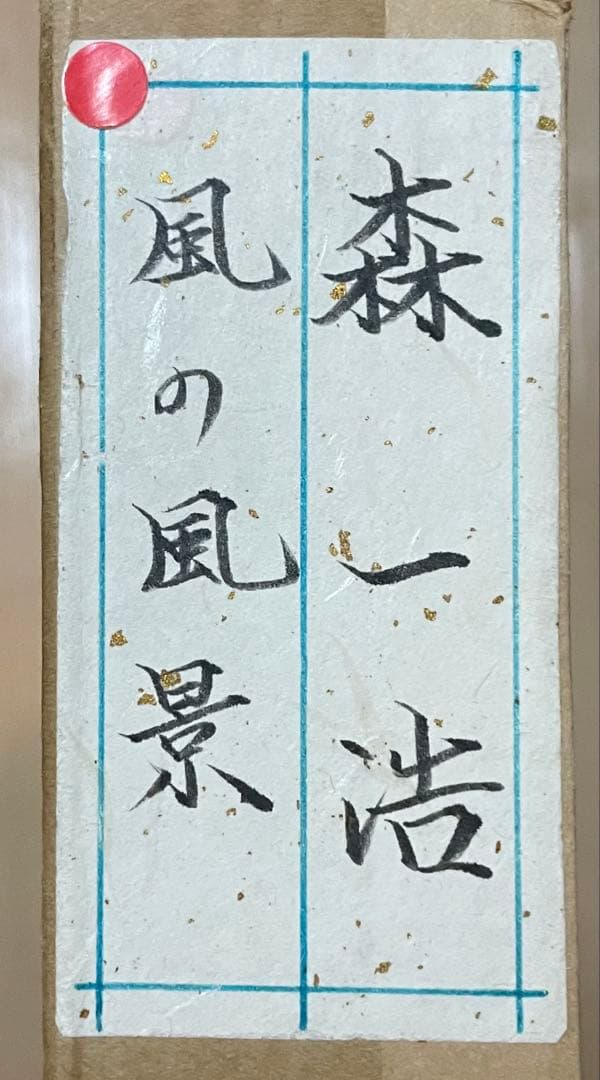 森一浩
風の風景